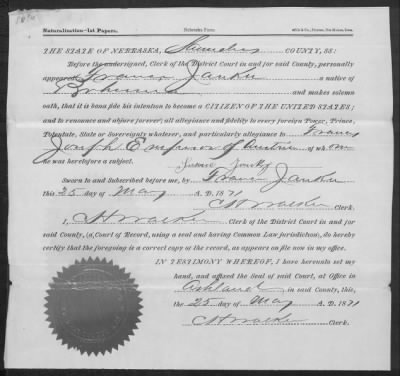 Naturalization—1st Papers. Nebraska Form
THE STATE OF NEBRASKA, Saunders COUNTY, SS:
Before the undersigned, Clerk of the District Court in and for said County, personally
appeared Franco Janku a native of
Bohemia and makes solemn
oath, that it is bona fide his intention to become a CITIZEN OF THE UNITED STATES;
and to renounce and abjure forever, all allegiance and fidelity to every foreign Power, Prince,
Potentate, State or Sovereignty whatever, and particularly allegiance to Francis
Joseph Emperor of Austria of whom
he was heretofore a subject.
Sworn to and Subscribed before me, by Franco Janku
this 25 day of May A. D. 1871
Clerk.
I, Clerk of the District Court in and for
said County, (a Court of Record, using a seal and having Common Law jurisdiction), do hereby
certify that the foregoing is a correct copy of the record, as appears on file now in my office.
IN TESTIMONY WHEREOF, I have hereunto set my
hand, and affixed the Seal of said Court, at Office in
Ashland in said County, this,
the 25 day of May A. D. 1871
Clerk.